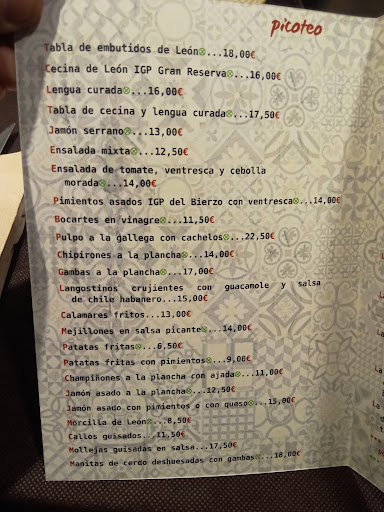 picoteo
Tabla de embutidos de León...18,00€
Cecina de León IGP Gran Reserva...16,00€
Lengua curada...16,00€
Tabla de cecina y lengua curada...17,50€
Jamón serrano...13,00€
Ensalada mixta...12,50€
Ensalada de tomate, ventresca y cebolla
morada...14,00€
Pimientos asados IGP del Bierzo con ventresca...14,00€
Bocartes en vinagre...11,50€
Pulpo a la gallega con cachelos...22,50€
Chipirones a la plancha...14,00€
Gambas a la plancha...17,00€
Langostinos crujientes con guacamole y salsa
de chile habanero...15,00€
Calamares fritos...13,00€
Mejillones en salsa picante...14,00€
Patatas fritas...6,50€
Patatas fritas con pimientos...9,00€
Champiñones a la plancha con ajada...11,00€
Jamón asado a la plancha...12,50€
Jamón asado con pimientos o con queso...15,00€
Morcilla de León...8,50€
Callos guisados...11,50€
Mollejas guisadas en salsa...17,50€
Manitas de cerdo deshuesadas con gambas...18,00€